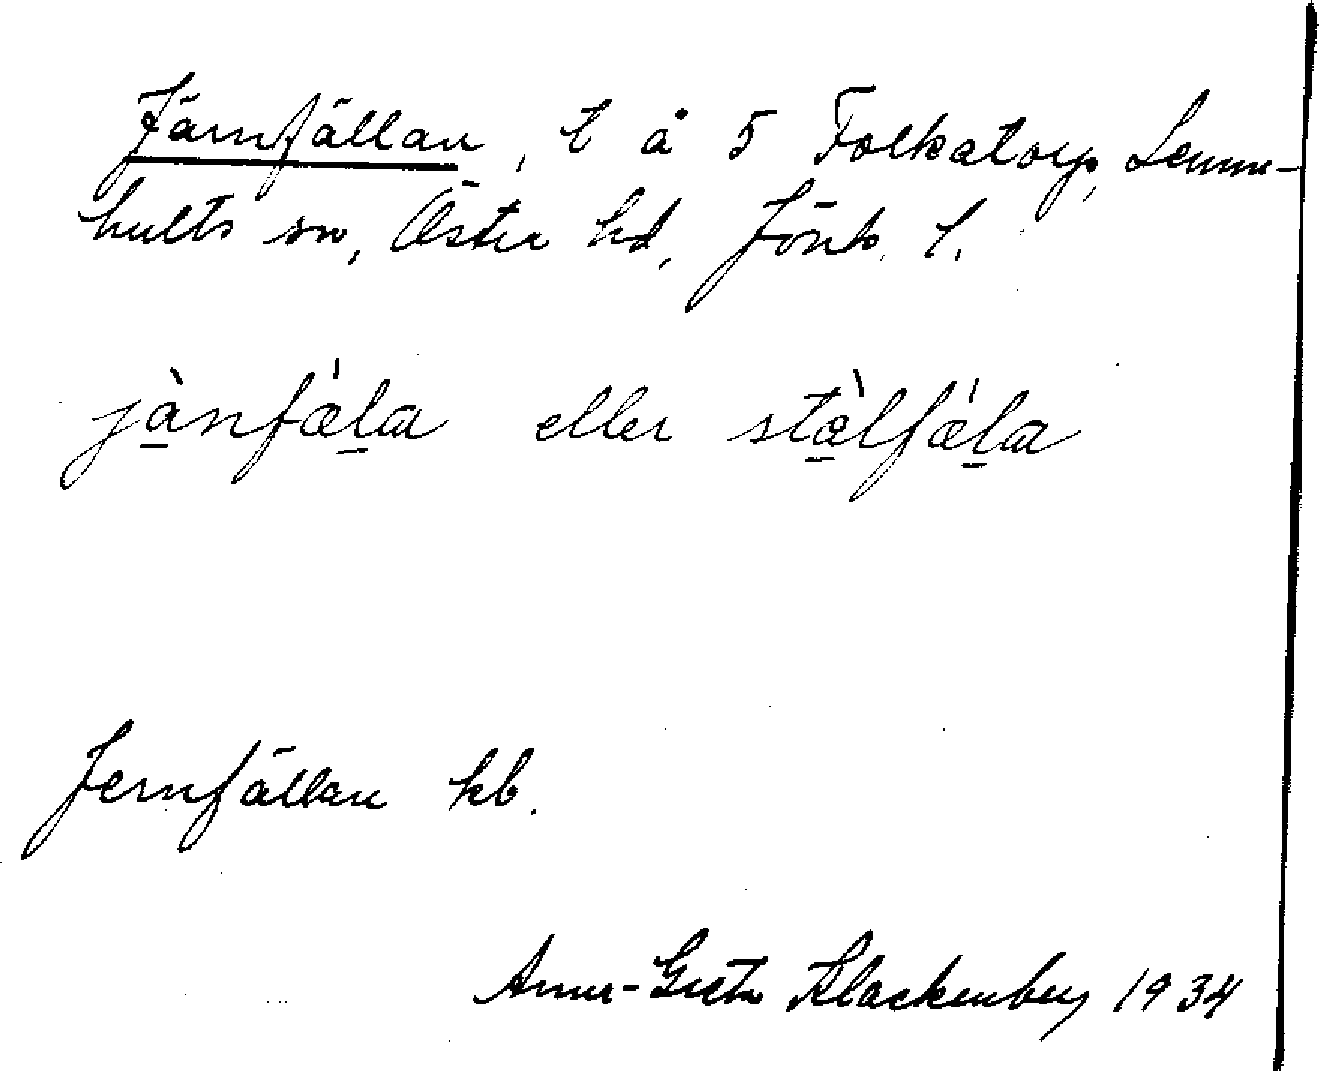 Järnfällan, t å 5 Folkatorp, Lemn-
hults sn, Östra hd, Jönk. l.
jànfǽla eller stàlfǽla
Jernfällan kb.
Anna-Greta Klackenberg 1934